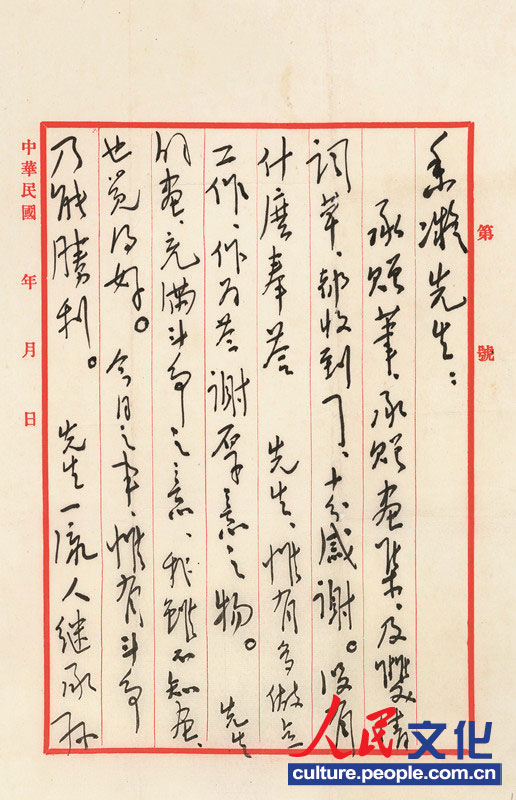 第 號
香凝先生：
承贈筆、承贈畫集、及雙清
詞草、都收到了、十分感謝。没有
什麽奉答 先生、惟有多做点
工作、作为答謝厚意之物。 先生
的畫、充满斗争之意、我雖不知畫、
也覚得好。今日之事、惟有斗争
乃能勝利。 先生一流人继承孙
中華民國 年 月 日
人民文化
culture.people.com.cn